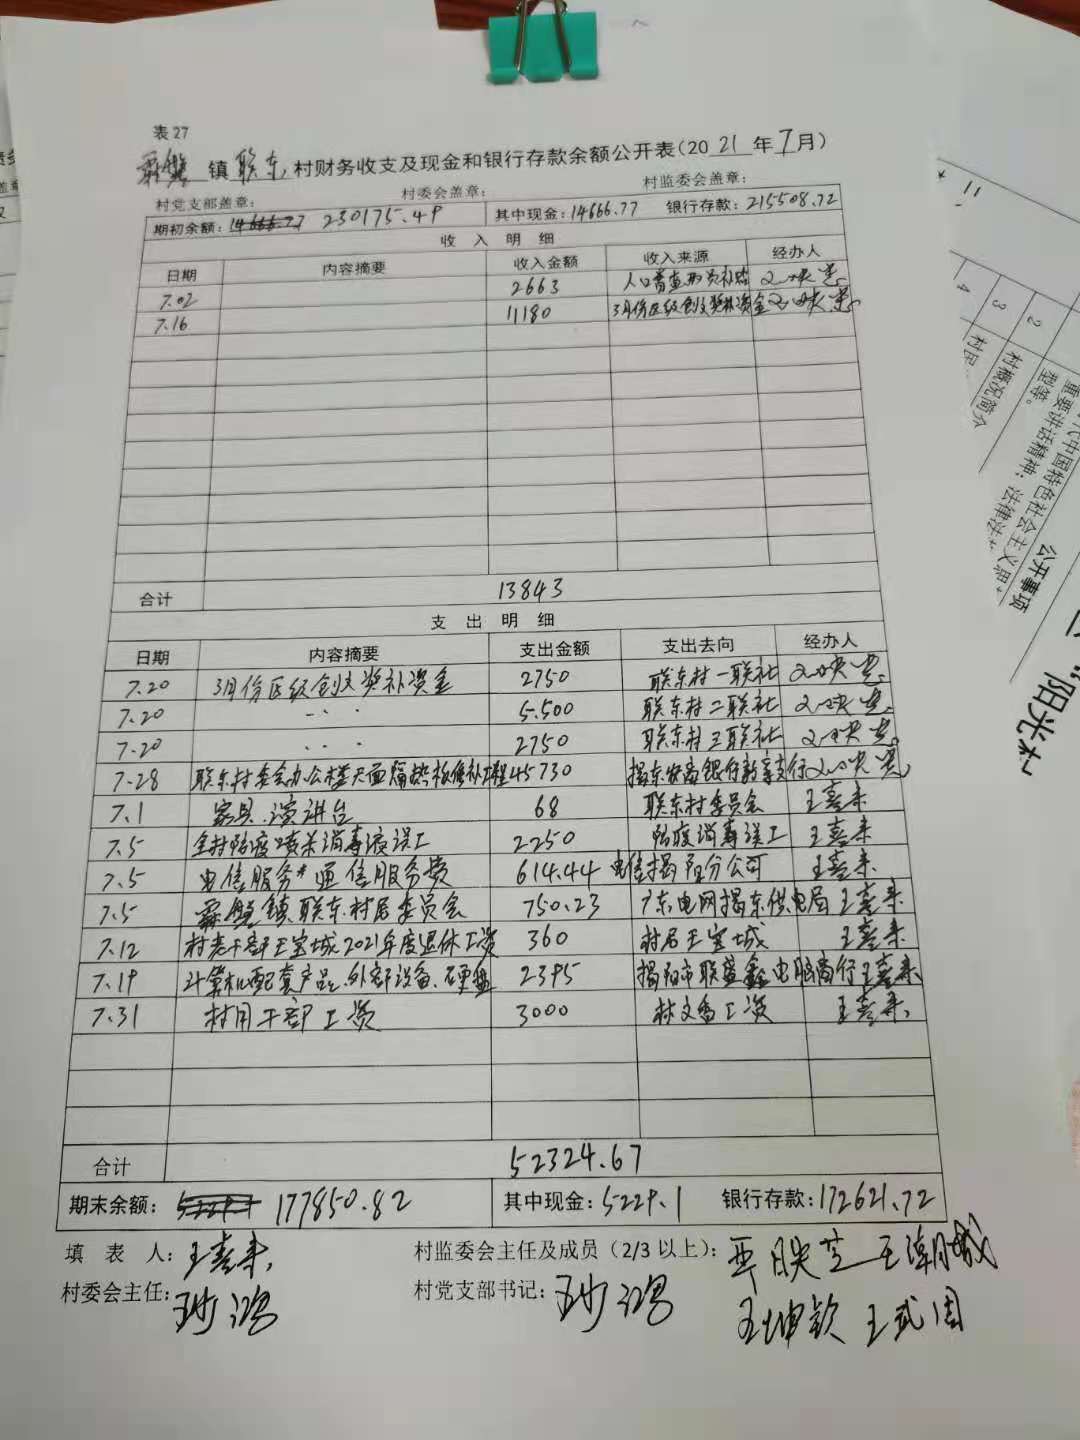 表27
霖磐镇联东村财务收支及现金和银行存款余额公开表(2021年7月)
村党支部盖章: 村委会盖章: 村监委会盖章:
期初余额: 14666.77 230175.49 其中现金: 14666.77 银行存款: 215508.72
收入明细
日期 内容摘要 收入金额 收入来源 经办人
7.02 2663 人口普查 员补贴
7.16 11180 3月份区级创文奖补资金
合计 13843
支出明细
日期 内容摘要 支出金额 支出去向 经办人
7.20 3月份区级创文奖补资金 2750 联东村一联社
7.20 5.500 联东村二联社
7.20 2750 联东村三联社
7.28 联东村委会办公楼天面隔热板修补工程 45730 揭东农商银行 支行
7.1 家具.演讲台 68 联东村委员会 王喜来
7.5 全村防疫喷杀消毒液误工 2250 防疫消毒误工 王喜来
7.5 电信服务*通信服务费 614.44 电信揭阳分公司 王喜来
7.5 霖磐镇联东村居委员会 750.23 广东电网揭东供电局 王喜来
7.12 村老干部王宝城2021年度退休工资 360 村居王宝城 王喜来
7.19 计算机配套产品.外部设备.硬盘 2395 揭阳市联盛鑫电脑商行 王喜来
7.31 村用干部工资 3000 林文香工资 王喜来
合计 52324.67
期末余额: 5229.1 177850.82 其中现金: 5229.1 银行存款: 172621.72
填表人: 王喜来 村监委会主任及成员(2/3以上): 王潮城
村委会主任: 村党支部书记: 王坤钦 王武周
重要讲话精神; 法律法
型等。
2 村概况简介
3 村民
4
公开事项
"阳光村